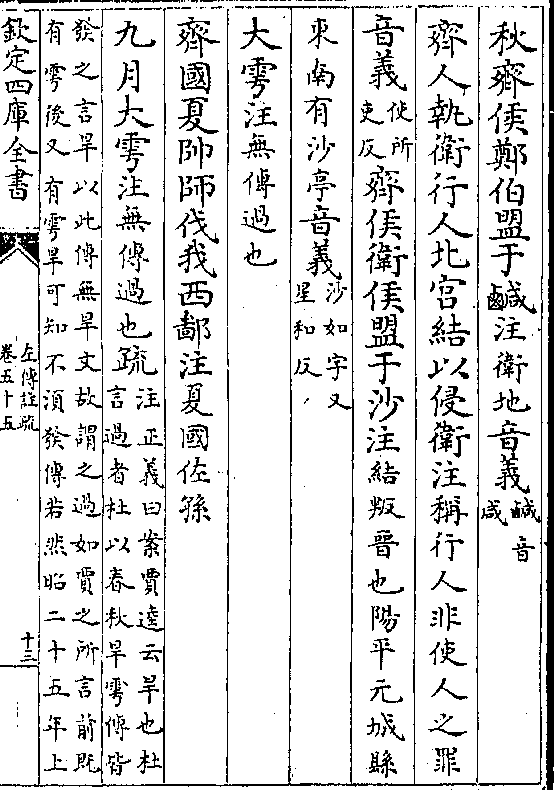 秋齊侯鄭伯盟于鹹注衛地音義鹹音
咸
齊人執衛行人北宫結以侵衛注稱行人非使人之罪
音義使所
吏反齊侯衛侯盟于沙注結叛晉也陽平元城縣
東南有沙亭音義沙如字又
星和反
大雩注無傳過也
齊國夏帥師伐我西鄙注夏國佐孫
九月大雩注無傳過也疏注正義曰案賈逵云旱也杜
言過者杜以春秋旱雩傳皆
發之言旱以此傳無旱文故謂之過如賈之所言前既
有雩後又有雩旱可知不須發傳若然昭二十五年上
欽定四庫全書
左傳註疏
卷五十五
十三